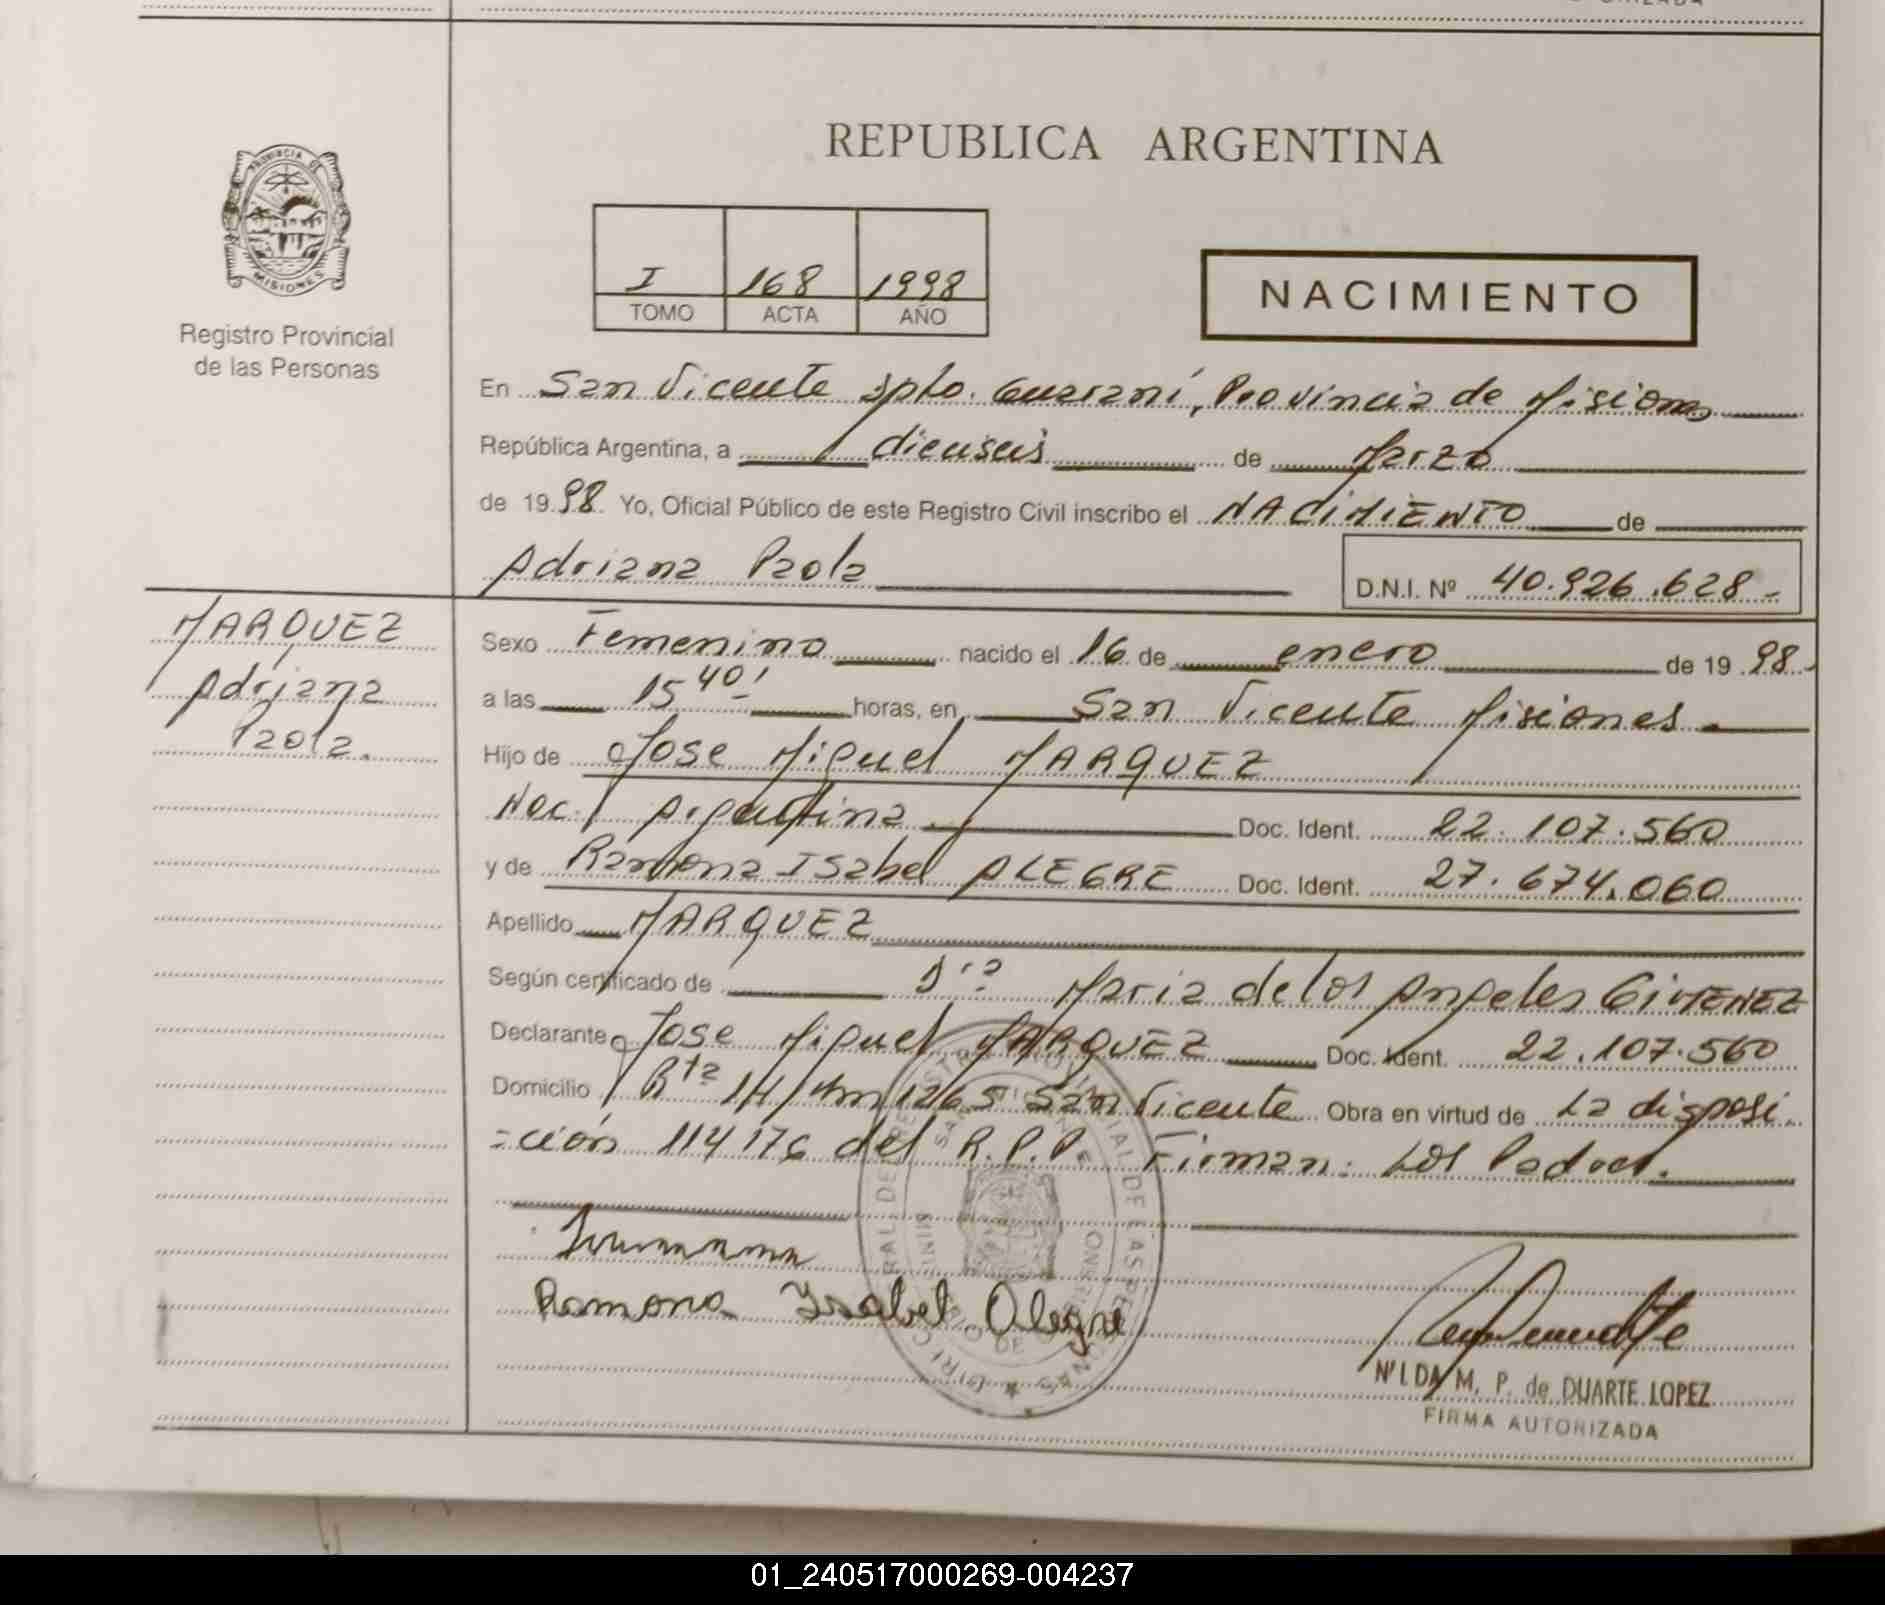 PROVINCIA DE
MISIONES
Registro Provincial
de las Personas
REPUBLICA ARGENTINA
I 168 1998
TOMO ACTA AÑO
NACIMIENTO
En San Vicente Dpto. Guaraní, Provincia de Misiones
República Argentina, a dieciseis de Marzo
de 1998 Yo, Oficial Público de este Registro Civil inscribo el NACIMIENTO de
Adriana Paola
D.N.I. Nº 40.926.628-
MARQUEZ
Adriana
Paola.
Sexo Femenino nacido el 16 de enero de 1998.
a las 15 40' horas, en San Vicente Misiones
Hijo de Jose Miguel MARQUEZ
Nac. Argentina Doc. Ident. 22.107.560
y de Ramona Isabel ALEGRE Doc. Ident. 27.674.060
Apellido MARQUEZ
Según certificado de Dra Maria de los Angeles GIMENEZ
Declarante Jose Miguel MARQUEZ Doc. Ident. 22.107.560
Domicilio Rta 14 Km 1265 San Vicente Obra en virtud de La disposi
=ción 114176 del R.P.P. Firman: Los Padres.
Ramona Ysabel Alegre
N'LDA M. P. de DUARTE LOPEZ
FIRMA AUTORIZADA
01_240517000269-004237